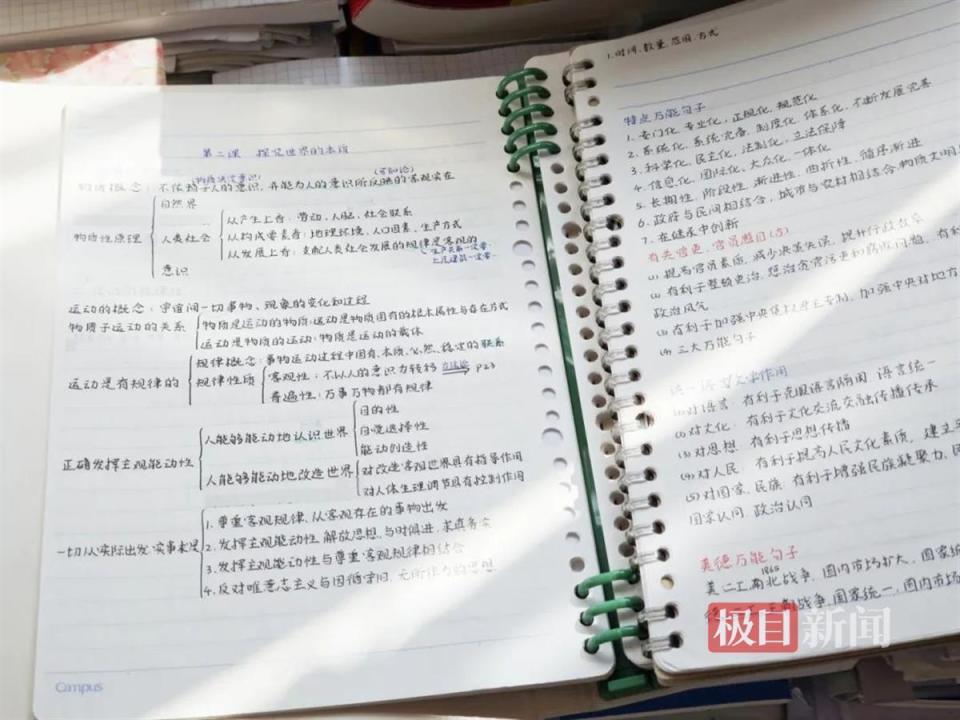 第二课 探究世界的本质
(物质决定意识) (可知论)
物质概念：不依赖于人的意识，并能为人的意识所反映的客观实在
自然界
物质性原理
人类社会
从产生上看：劳动、人脑、社会联系
从构成要素看：地理环境、人口因素、生产方式
从发展上看：支配人类社会发展的规律是客观的
生产关系一定要
上层建筑一定要
意识
运动的概念：宇宙间一切事物、现象的变化和过程
物质于运动的关系
物质是运动的物质：运动是物质固有的根本属性与存在方式
运动是物质的运动：物质是运动的载体
运动是有规律的
规律概念：事物运动过程中固有、本质、必然、稳定的联系
规律性质
客观性：不以人的意识为转移 方法论 P23
普遍性：万事万物都有规律
正确发挥主观能动性
人能够能动地认识世界
目的性
自觉选择性
能动创造性
人能够能动地改造世界
对改造客观世界具有指导作用
对人体生理调节具有控制作用
一切从实际出发，实事求是
1.尊重客观规律，从客观存在的事物出发
2.发挥主观能动性，解放思想，与时俱进，求真务实
3.发挥主观能动性与尊重客观规律相结合
4.反对唯意志主义与因循守旧，无所作为的思想
Campus
1.时间、数量、范围、方式
特点万能句子
1.专门化，专业化，正规化，规范化
2.系统化，系统完备，制度化，体系化，不断发展完善
3.科学化，民主化，法制化，立法保障
4.信息化，国际化，大众化，一体化
5.长期性，阶段性，渐进性，曲折性，循序渐进
6.政府与民间相结合，城市与农村相结合，物质文明
7.在继承中创新
有关官吏、官员题目(5)
(1)提高官员素质，减少决策失误，提升行政效率
(2)有利于整顿吏治，惩治贪官污吏和腐败问题，有利
政治风气
(3)有利于加强中央集权君主专制，加强中央对地方
(4)三大万能句子
统一语言文字作用
(1)对语言：有利于克服语言隔阂，语言统一
(2)对文化：有利于文化交流交融传播传承
(3)对思想：有利于思想传播
(4)对人民：有利于提高人民文化素质，建立
(5)对国家、民族：有利于增强民族凝聚力，
国家认同，政治认同
美德万能句子
1865
美二工，南北战争，国内市场扩大，国家统
战争，国家统一，国内市场
极目新闻